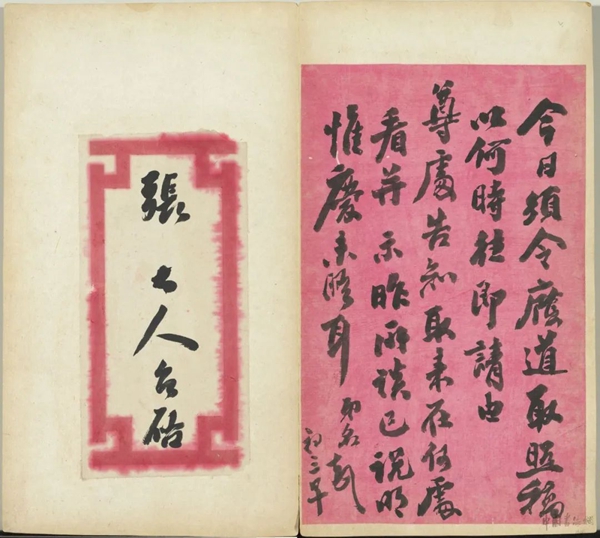 今日須令廕道取照稿
以何時往即請由
尊處告知取来在何處
看并示昨所談已說明
惟慶未晤耳 即名
初三早
張 大人台啓